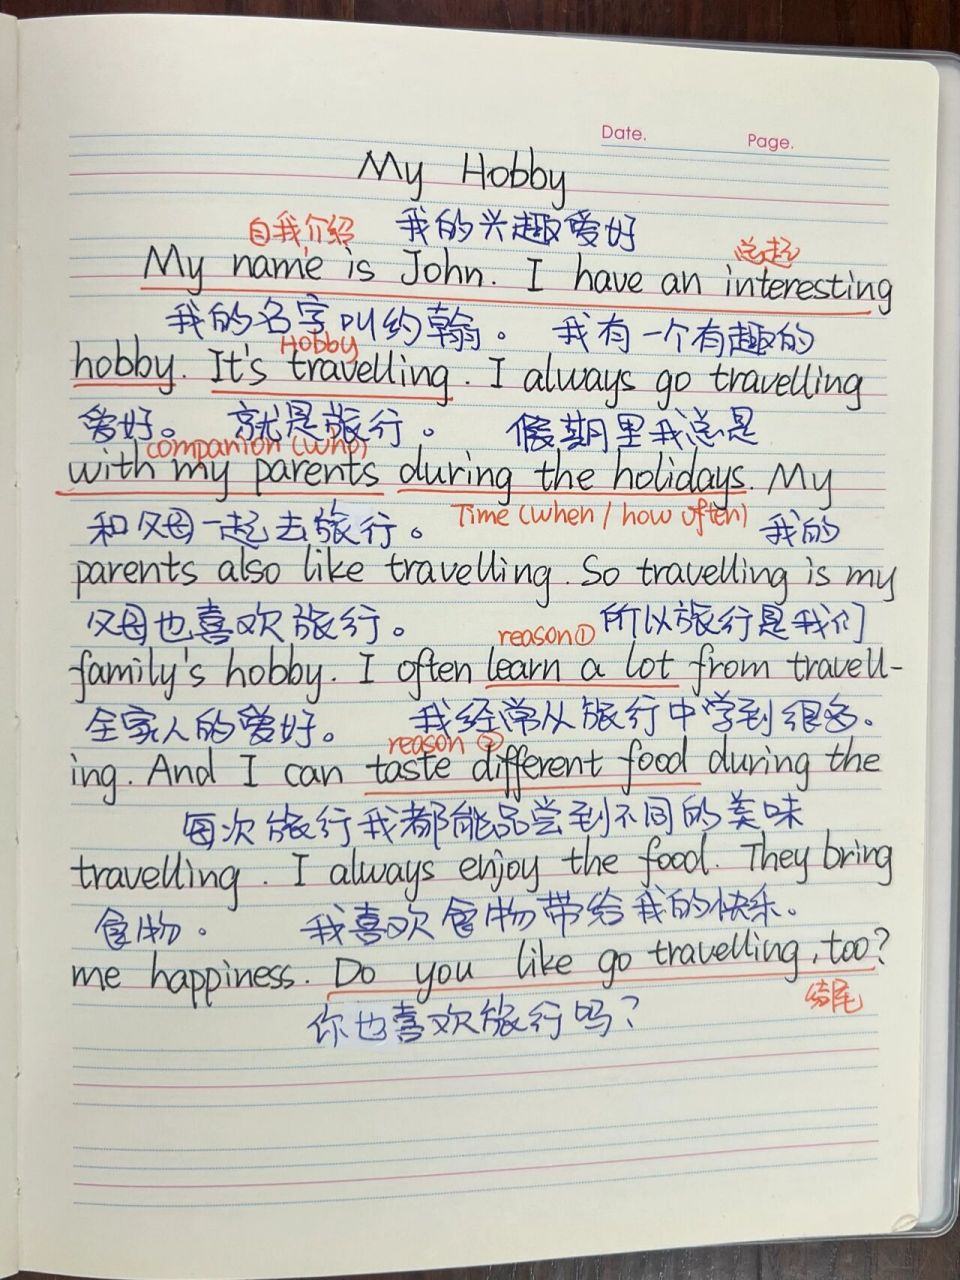 Date. Page.
My Hobby
自我介绍 我的兴趣爱好 总起
My name is John. I have an interesting
我的名字叫约翰。 我有一个有趣的
Hobby
hobby. It's travelling. I always go travelling
爱好。 就是旅行。 假期里我总是
companion (who)
with my parents during the holidays. My
Time (when / how often)
和父母一起去旅行。 我的
parents also like travelling. So travelling is my
父母也喜欢旅行。 所以旅行是我们
reason①
family's hobby. I often learn a lot from travell-
全家人的爱好。 我经常从旅行中学到很多。
reason ②
ing. And I can taste different food during the
每次旅行我都能品尝到不同的美味
travelling. I always enjoy the food. They bring
食物。 我喜欢食物带给我的快乐。
me happiness. Do you like go travelling, too?
结尾
你也喜欢旅行吗?